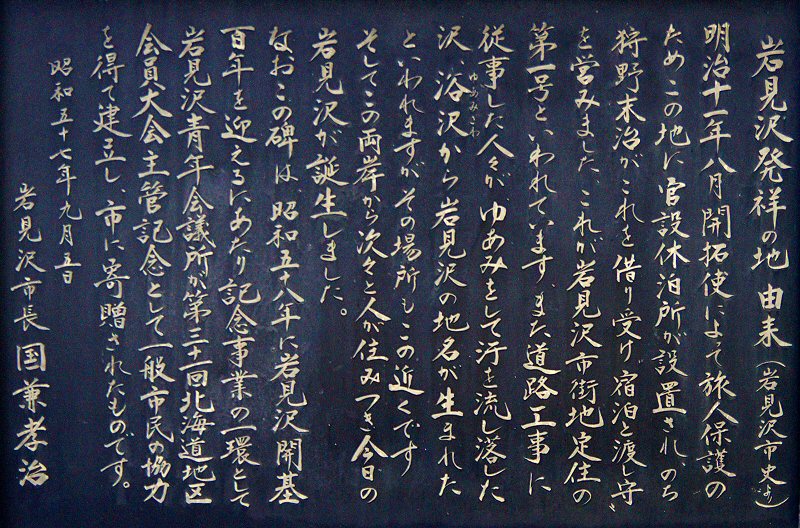 岩見沢発祥の地由来（岩見沢市史より）
明治十一年八月開拓使によって旅人保護の
ためこの地に官設休泊所が設置され、のち
狩野末治がこれを借り受け宿泊と渡し守
を営みました、これが岩見沢市街地定住の
第一号といわれています、また道路工事に
従事した人々が、ゆあみをして汗を流し落した
沢、浴沢から岩見沢の地名が生まれた
ゆあみさわ
といわれますがその場所もこの近くです
そしてこの両岸から次々と人が住みつき今日の
岩見沢が誕生しました。
なおこの碑は、昭和五十八年に岩見沢開基
百年を迎えるにあたり記念事業の一環として
岩見沢青年会議所が第三十一回北海道地区
会員大会主管記念として一般市民の協力
を得て建立し、市に寄贈されたものです。
昭和五十七年九月五日
岩見沢市長 国兼孝治